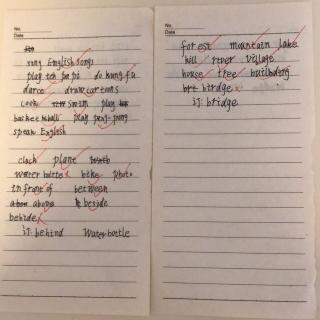 No.
Date
sung English songs
play the pi pa do kung fu
dance draw cartoons
cook swim play
basketball play ping-pong
speak English
clock plant
water bottle bike photo
in front of between
above beside
behide
订: behind Water bottle
No.
Date
forest mountain lake
hill river village
house tree building
birdge
订: bridge